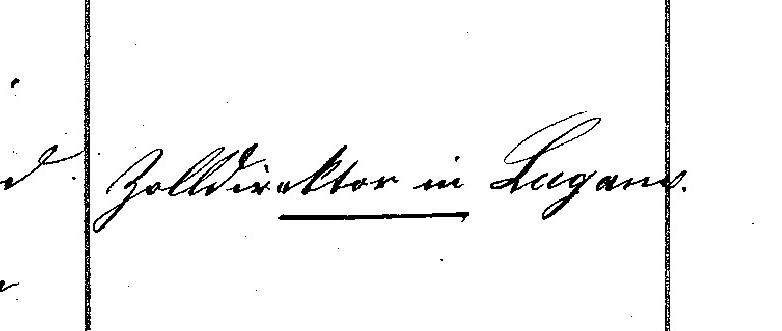 Zolldirektor in Lugano.